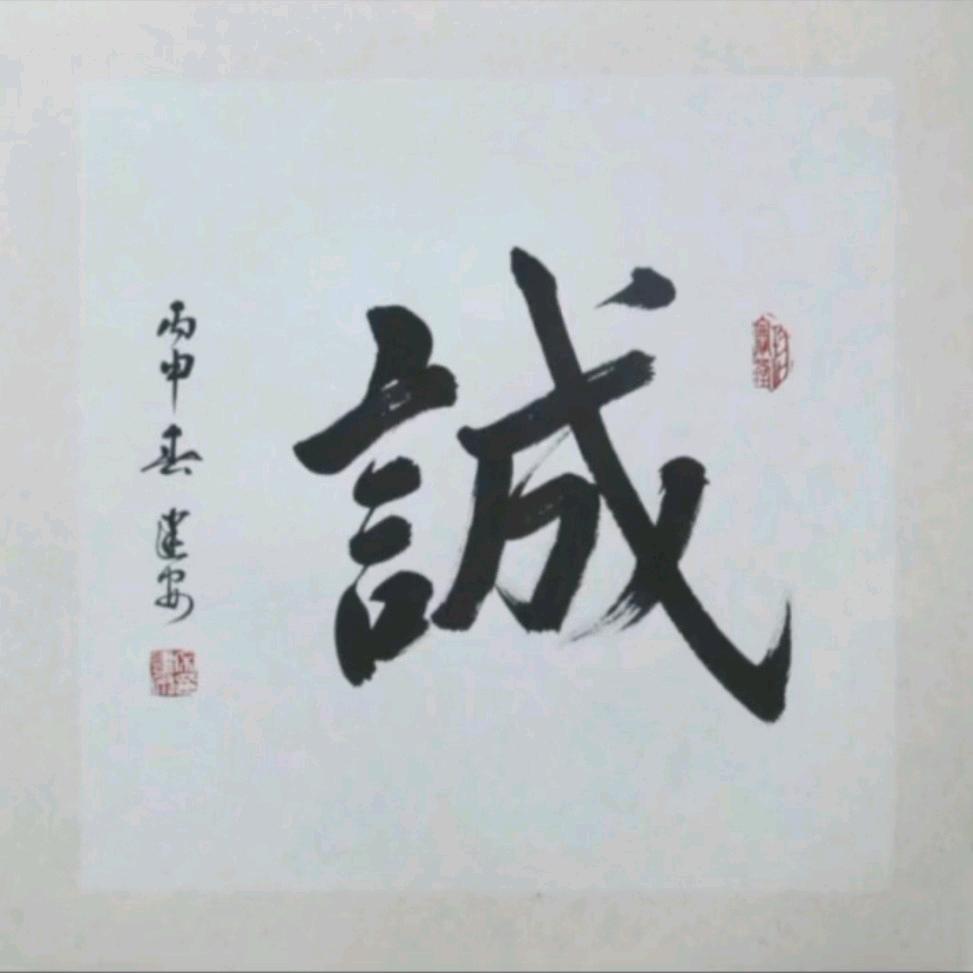 誠
丙申春建安